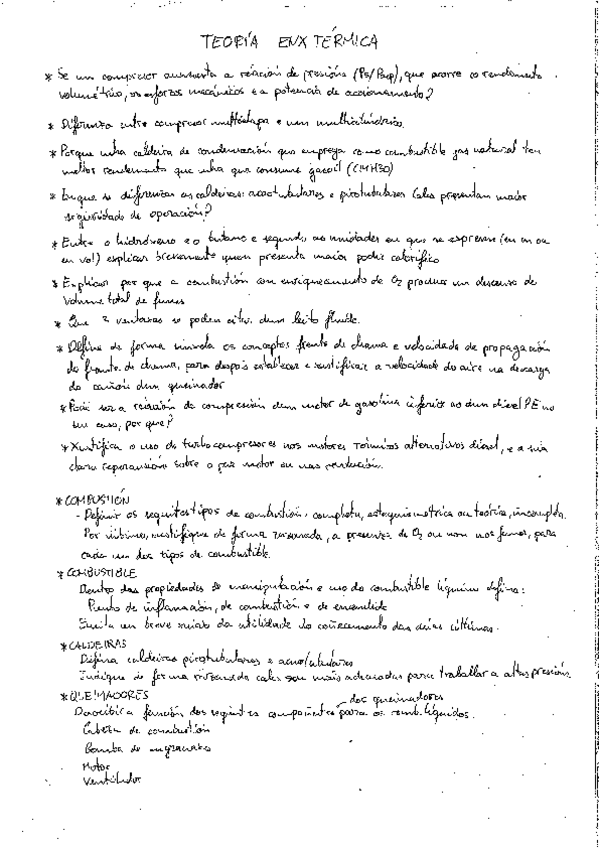 TEORÍA ENX TÉRMICA
* Se un compresor aumenta a relación de presións (Ps/Pasp), que ocorre co rendemento
volumétrico, os esforzos mecánicos e a potencia de accionamento?
* Diferenza entre compresor multietapa e un multicilíndrico.
* Porque unha caldeira de condensación que emprega como combustible gas natural ten
mellor rendemento que unha que consume gasoil (CMH30)
* En que se diferenzan as caldeiras acuotubulares e pirotubulares Cales presentan maior
seguridade de operación?
* Entre o hidróxeno e o butano e segundo as unidades en que se exprese (en m ou
en vol) explicar brevemente quen presenta maior poder calorífico
* Explicar por que a combustión con enriquecemento de O2 produce un descenso de
volume total de fumes
* Que 3 ventaxas se poden citar dun leito fluído.
* Define de forma sinxela os conceptos frente de chama e velocidade de propagación
do frente de chama, para despois establecer e xustificar a velocidade do aire na descarga
do canón dun queimador
* Pode ser a relación de compresión dun motor de gasolina inferior ao dun diesel? E no
seu caso, por que?
* Xustifica o uso de turbocompresores nos motores térmicos alternativos diesel, e a súa
clara repercusión sobre o par motor ou nas revolución.
* COMBUSTIÓN
- Definir os seguintes tipos de combustión: completa, estequiométrica ou teórica, incompleta.
Por último, xustifique de forma razoada, a presenza de O2 ou non nos fumes, para
cada un dos tipos de combustible.
* COMBUSTIBLE
Dentro das propiedades de manipulación e uso do combustible líquino defina:
Punto de inflamación, de combustión e de encendido
Emita un breve xuízo da utilidade do coñecemento das dúas últimas.
* CALDEIRAS
Defina caldeiras pirotubulares e acuotubulares
Indique de forma razoada cales son máis adecuadas para traballar a altas presións.
* QUEIMADORES
Describir a función dos seguintes compoñentes dos queimadores para os comb. líquidos.
Cabeza de combustión
Bomba de engranaxes
Motor
Ventilador